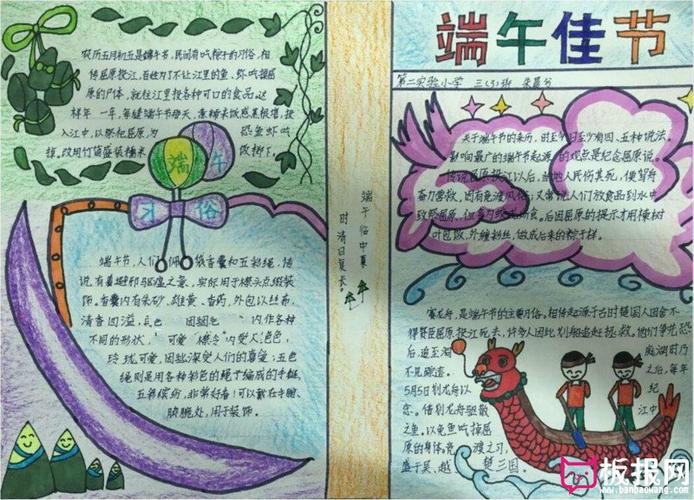 农历五月初五是端午节,民间有吃粽子的习俗,相
传屈原投江,百姓为了不让江里的鱼、虾吃掉屈
原的尸体,就往江里投各种可口的食品。这
样年一年,每逢端午节每天,
入江中,以祭祀屈原,为 恐鱼虾吃
掉,改用竹筒盛装糯米
端午
习俗
端午节,人们佩 袋香囊和五彩绳,传
说,有着避邪与驱虫之意,实际用于襟头点缀装
饰。香囊内有朱砂、雄黄、香药,外包以丝布,
清香四溢, 内作各种
不同的形状,
玲珑可爱,因此深受人们的喜爱;五色
绳则是用各种彩色的绳子编成的手链,
五彩缤纷,非常好看!可以戴在手腕、
脚腕处,用于装饰。
端午临中夏
时清日复长。
端午佳节
第二实验小学 三(3)班
关于端午节的来历,时至今日至少有四、五种说法。
影响最广的端午节起源的观点是纪念屈原说。
传说屈原投江以后,当地人民伤其死,便驾舟
奋力营救,因有竞渡风俗;又常说人们放食品到水中
致祭屈原,但多为蛟龙所食。后因屈原的提示才用楝树
叶包饭,外缠彩丝,做成后来的粽子样。
赛龙舟,是端午节的主要习俗。相传起源于古时楚国人因舍不
得贤臣屈原投江死去,许多人划船追赶拯救。他们争先恐
后,追至洞 庭湖时乃
不见踪迹。 之后,每年
5月5日划龙舟以 纪
念。借划龙舟驱散 江中
之鱼,以免鱼吃掉屈
原的身体。竞 渡之习,
盛于吴、越、 楚三国。
板报网
www.banbaowang.com